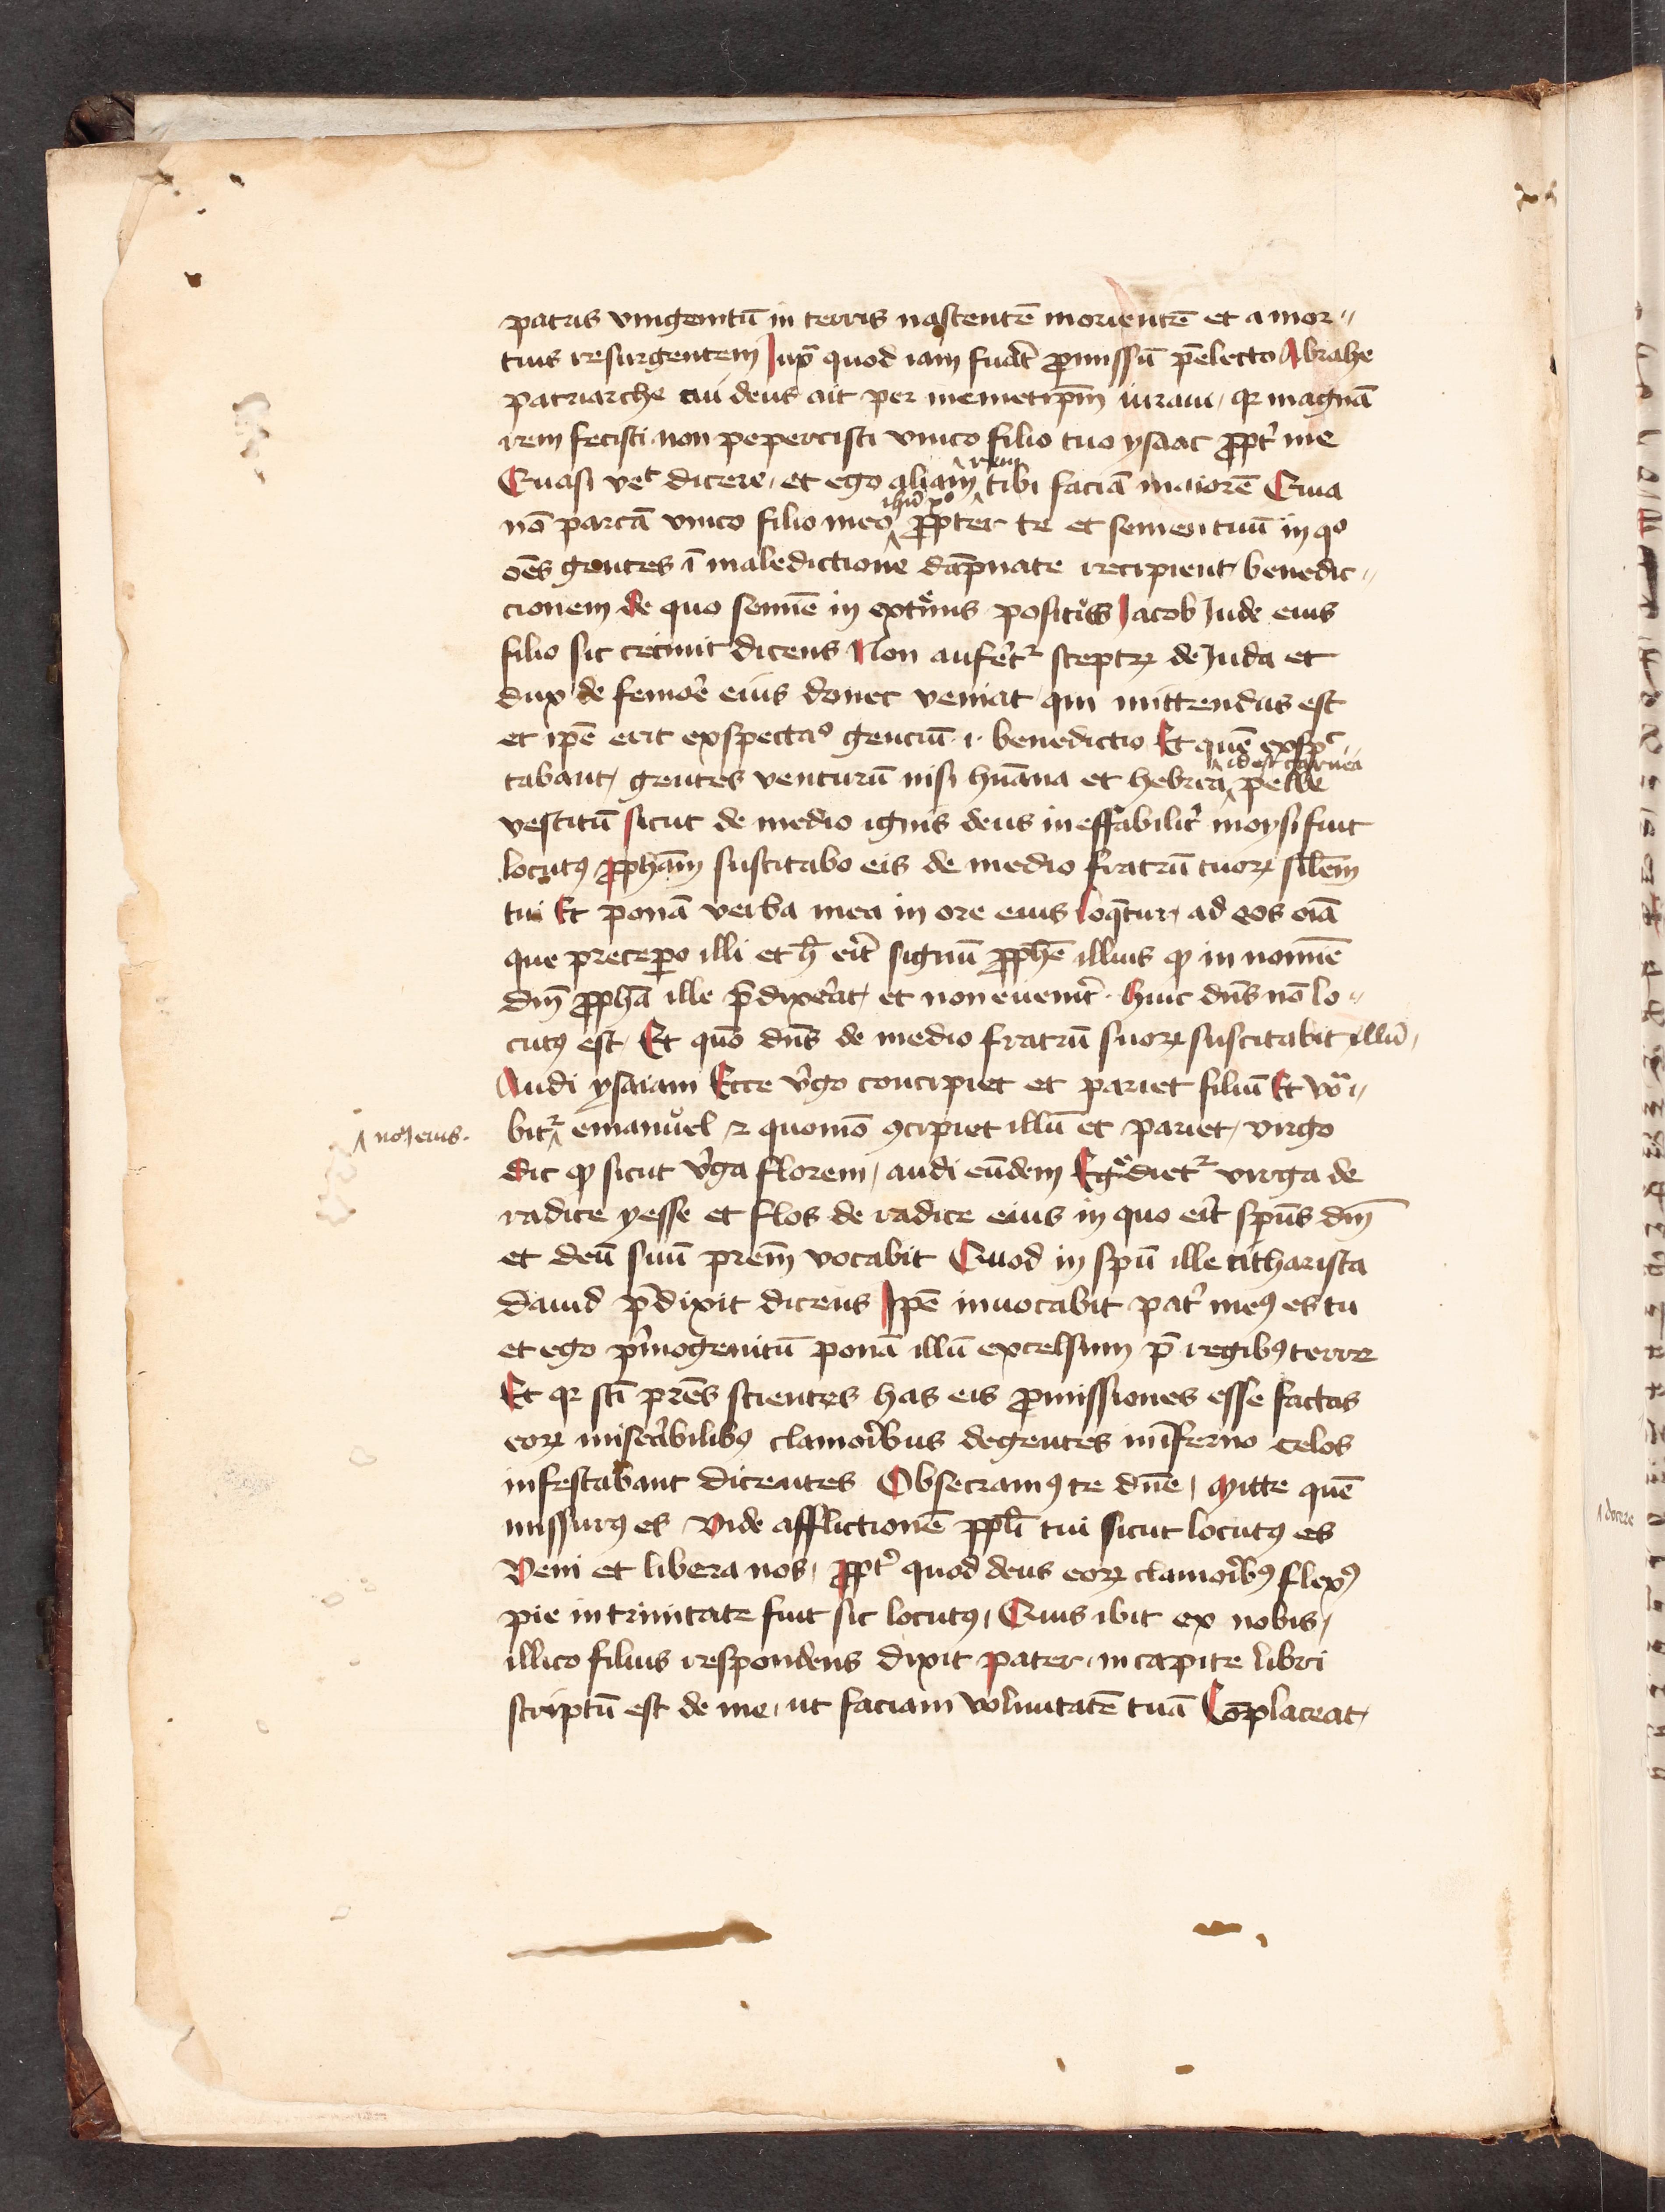 patris vnigenitū in terris nascentē morientē et a mor〃
tuis resurgentem Iuxͣ quod iam fuāt ꝓmissū p̄electo Abrahe
patriarche cui deus ait per memetip̄m iuraui, qꝛ magnā
rem fecisti non pepercisti vnico filio tuo ysaac ꝓpt̉ me
Quasi veꝉ dicere, et ego aliam ^rem tibi faciā maiorē Quia
nō parcā vnico filio meo ^ihū xº ꝓpter te et semen tuū in qº
oēs gentes ī maledictione dāpnate recipient benedic〃
cionem de quo semīe in extͤmis positus Jacob Jude eius
filio sic cecinit dicens Non aufer̉tᷣ sceptꝝ de Juda et
dux de femoͬe eius donec veniat qui mittendus est
et ip̄e erit exspectaº genciū .i. benedictio Et quē exspᶜ〃
tabant gentes venturū nisi hūana et hebrea ^id est carnea pelle
vestitū sicut de medio ignis deus ineffabilit̉ moysi fuit
locutꝰ ꝓph̄am suscitabo eis de medio fratrū tuoꝝ sil̄em
tui Et ponā verba mea in ore eius loq̄tur ad eos oīa
que precepero illi et h̄ er̉it signū ꝓph̄e illius ꝙ in noīe
dn̄i ꝓph̄a ille p̄dixer̉at et non euener̉it . huic dn̄s nō lo〃
cutꝰ est Et quō dn̄s de medio fratrū suoꝝ suscitabit illū,
Audi ysaiam Ecce v̉go concipiet et pariet filiū Et voͣ〃
bitᷣ ^ emanuel ⁊ quomō ꝯcipiet illū et pariet, virgo
^ noꝫ eius.
dic ꝙ sicut v̉ga florem, audi eūdem Egͤdietᷣ virga de
radice yesse et flos de radice eius in quo er̉it sp̄us dn̄i
et deū suū pr̄em vocabit Quod in sp̄u ille citharista
dauid p̄dixit dicens Ip̄e inuocabit pat̉ meꝰ es tu
et ego p̉mogenitū ponā illū excelsum p̄ regibꝰ terre
Et qꝛ sc̄i pr̄es scientes has eis ꝓmissiones esse factas
eoꝝ miser̉abilibꝰ clamor̉ibus degentes in īferno celos
infestabant dicentes Obsecramꝰ te dn̄e, Mitte quē
missurꝰ es Vide afflictionē ppl̄i tui sicut locutꝰ es
Veni et libera nos, ꝓpt̉ quod deus eoꝝ clamor̉ibꝰ flexꝰ
pie in trinitate fuit sic locutꝰ, Quis ibit ex nobis,
illico filius respondens dixit pater in capite libri
scriptū est de me, ut faciam voluntatē tuā Cōplaceat,
^ docere